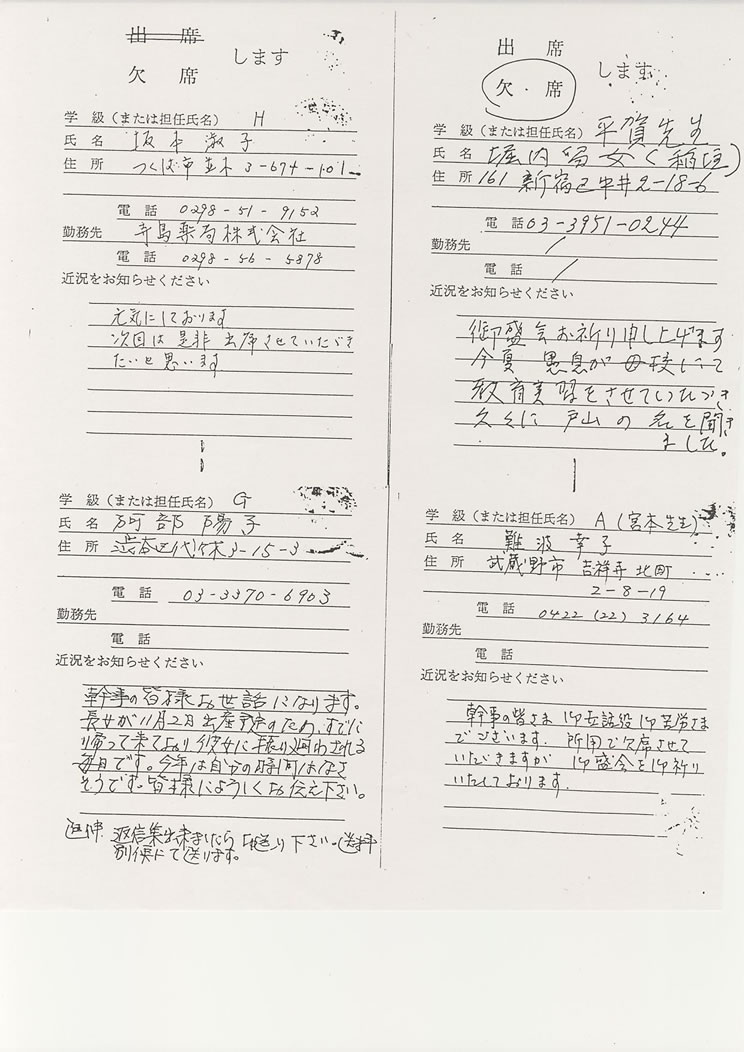 出席
欠席
します
学級（または担任氏名） H
氏名 坂本淑子
住所 つくば市並木3-674-101
電話 0298-51-9152
勤務先 寺島薬局株式会社
電話 0298-56-5878
近況をお知らせください
元気にしております
次回は是非出席させていただき
たいと思います
学級（または担任氏名） G
氏名 阿部陽子
住所 渋谷区代々木3-15-3
電話 03-3370-6903
勤務先
電話
近況をお知らせください
幹事の皆様お世話になります。
長女が11月2日出産予定のため、すでに
帰って来ており彼女に振り廻わされる
毎日です。今年は自分の時間はなさ
そうです。皆様によろしくお伝え下さい。
追伸 返信集出来ましたらお送り下さい。送料
別便にて送ります。
出席
欠席
します
学級（または担任氏名） 平賀先生
氏名 堀内留女(稲垣)
住所 161 新宿区中井2-18-6
電話 03-3951-0244
勤務先
電話
近況をお知らせください
御盛会お祈り申し上げます
今夏 愚息が母校にて
教育実習をさせていただき
久々に戸山の名を聞き
ました。
学級（または担任氏名） A(宮本先生)
氏名 難波幸子
住所 武蔵野市吉祥寺北町
2-8-19
電話 0422(22)3164
勤務先
電話
近況をお知らせください
幹事の皆さま 御世話役御苦労さま
でございます。所用で欠席させて
いただきますが 御盛会を御祈り
いたしております。